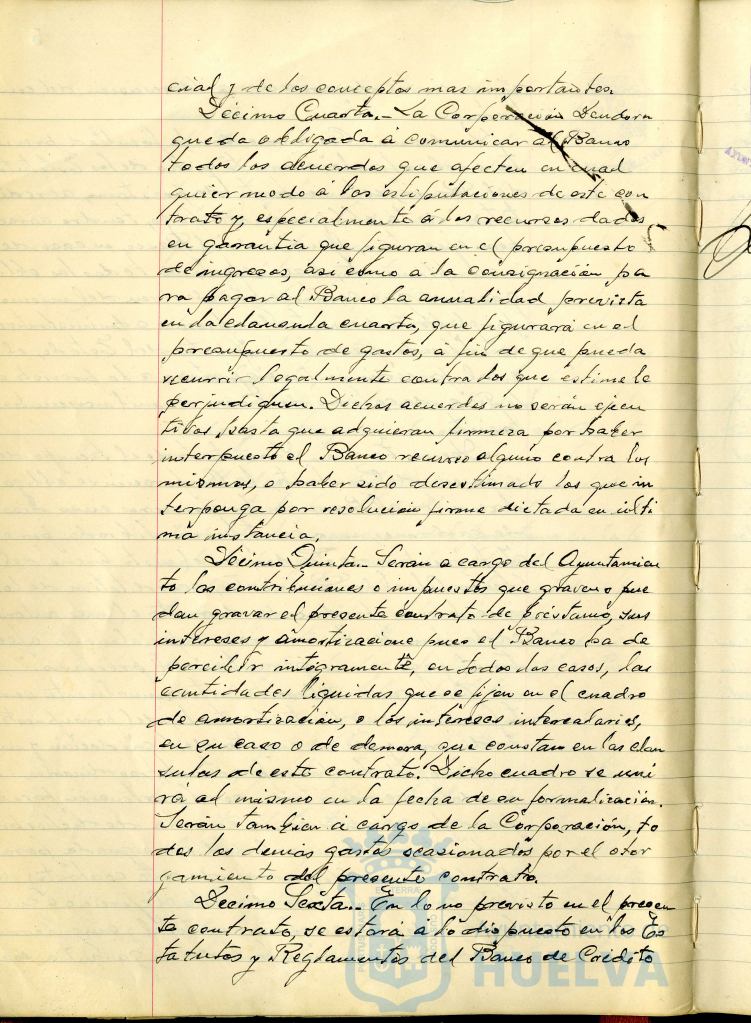 cial y de los conceptos mas importantes.
Décimo Cuarta.- La Corporación Deudora
queda obligada á comunicar al Banco
todos los acuerdos que afecten en cual
quier modo á las estipulaciones de este con
trato y, especialmente á los recursos dados
en garantia que figuran en el presupuesto
de ingresos, asi como a la consignación pa
ra pagar al Banco la anualidad prevista
en la clausula cuarta, que figurará en el
presupuesto de gastos, á fin de que pueda
recurrir legalmente contra los que estime le
perjudiquen. Dichos acuerdos no serán ejecu
tivos hasta que adquieran firmeza por haber
interpuesto el Banco recurso alguno contra los
mismos, o haber sido desestimado los que in
terponga por resolución firme dictada en últi
ma instancia.
Décimo Quinta.- Serán a cargo del Ayuntamien
to las contribuciones o impuestos que graven o pue
dan gravar el presente contrato de préstamo, sus
intereses y amortizacione pues el Banco ha de
percibir integramente, en todos los casos, las
cantidades liquidas que se fijen en el cuadro
de amortización, o los intereses intercalarios,
en su caso o de demora, que constan en las clau
sulas de este contrato. Dicho cuadro se uni
rá al mismo en la fecha de su formalización.
Serán tambien á cargo de la Corporación, to
dos los demás gastos ocasionados por el otor
gamiento del presente contrato.
Decimo Sexta.- En lo no previsto en el presen
te contrato, se estará á lo dispuesto en los Es
tatutos y Reglamentos del Banco de Crédito
HUELVA